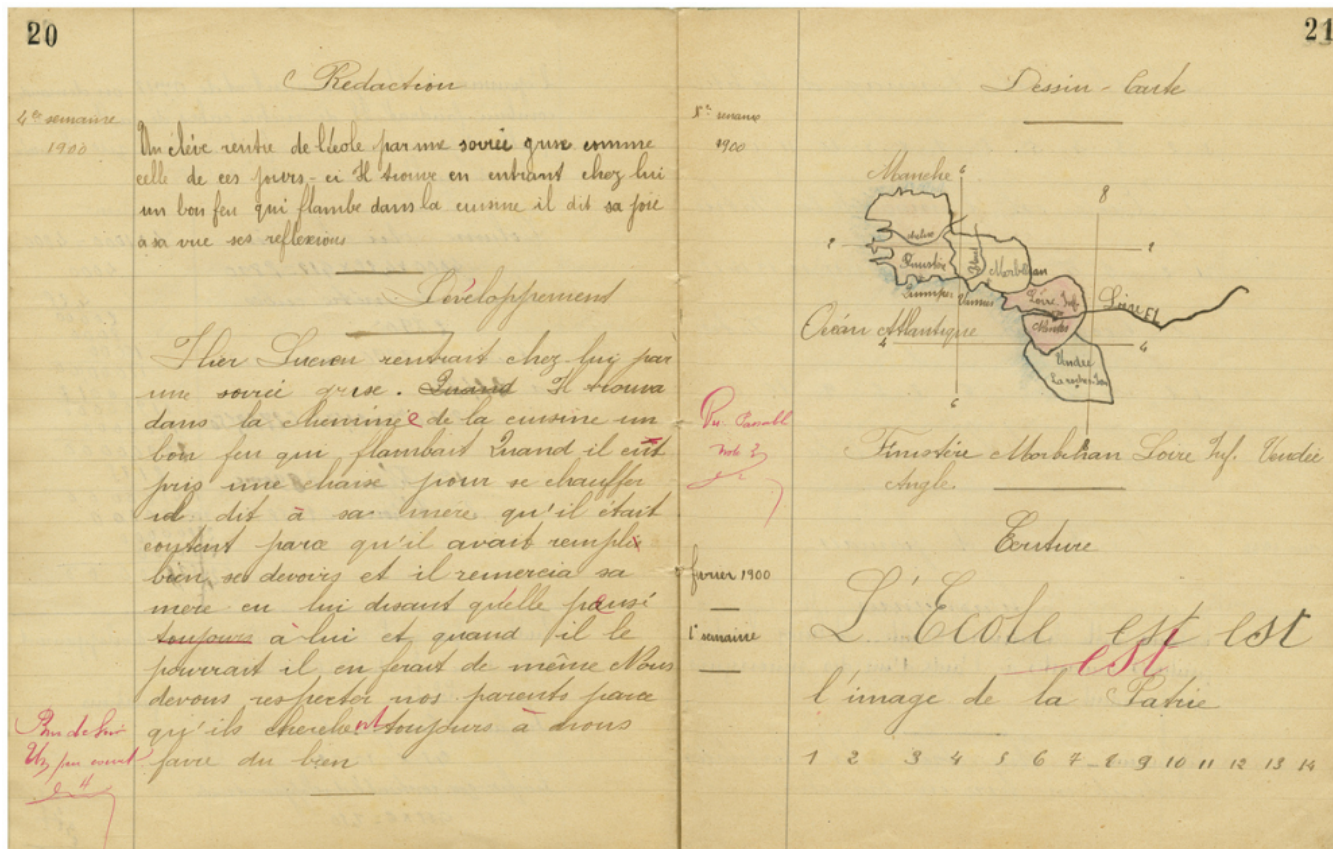 20
Rédaction
4e semaine
1900
Un élève rentre de l'école par une soirée grise comme
celle de ces jours-ci Il trouve en entrant chez lui
un bon feu qui flambe dans la cuisine il dit sa joie
à sa vue ses reflexions
Développement
Hier Lucien rentrait chez lui par
une soirée grise. Quand Il trouva
dans la cheminée de la cuisine un
bon feu qui flambait Quand il eut
pris une chaise pour se chauffer
il dit à sa mère qu'il était
content parce qu'il avait rempli
bien ses devoirs et il remercia sa
mère en lui disant qu'elle pensé
toujours à lui et quand il le
pourrait il en ferait de même Nous
devons respecter nos parents parce
qu'ils cherchent toujours à nous
faire du bien
Un peu court
4
21
Dessin - Carte
5e semaine
1900
Manche
6
8
Aulne
Finistère
Blavet
Morbihan
Quimper
Vannes
Loire Inf.
Nantes
Loire Fl.
Océan Atlantique
4
4
Vendée
La roche s. Yon
6
8
Passable
Note 3
Finistère Morbihan Loire Inf. Vendée
Angle.
Ecriture
février 1900
1e semaine
L'Ecole est est
est
l'image de la Patrie
1 2 3 4 5 6 7 8 9 10 11 12 13 14